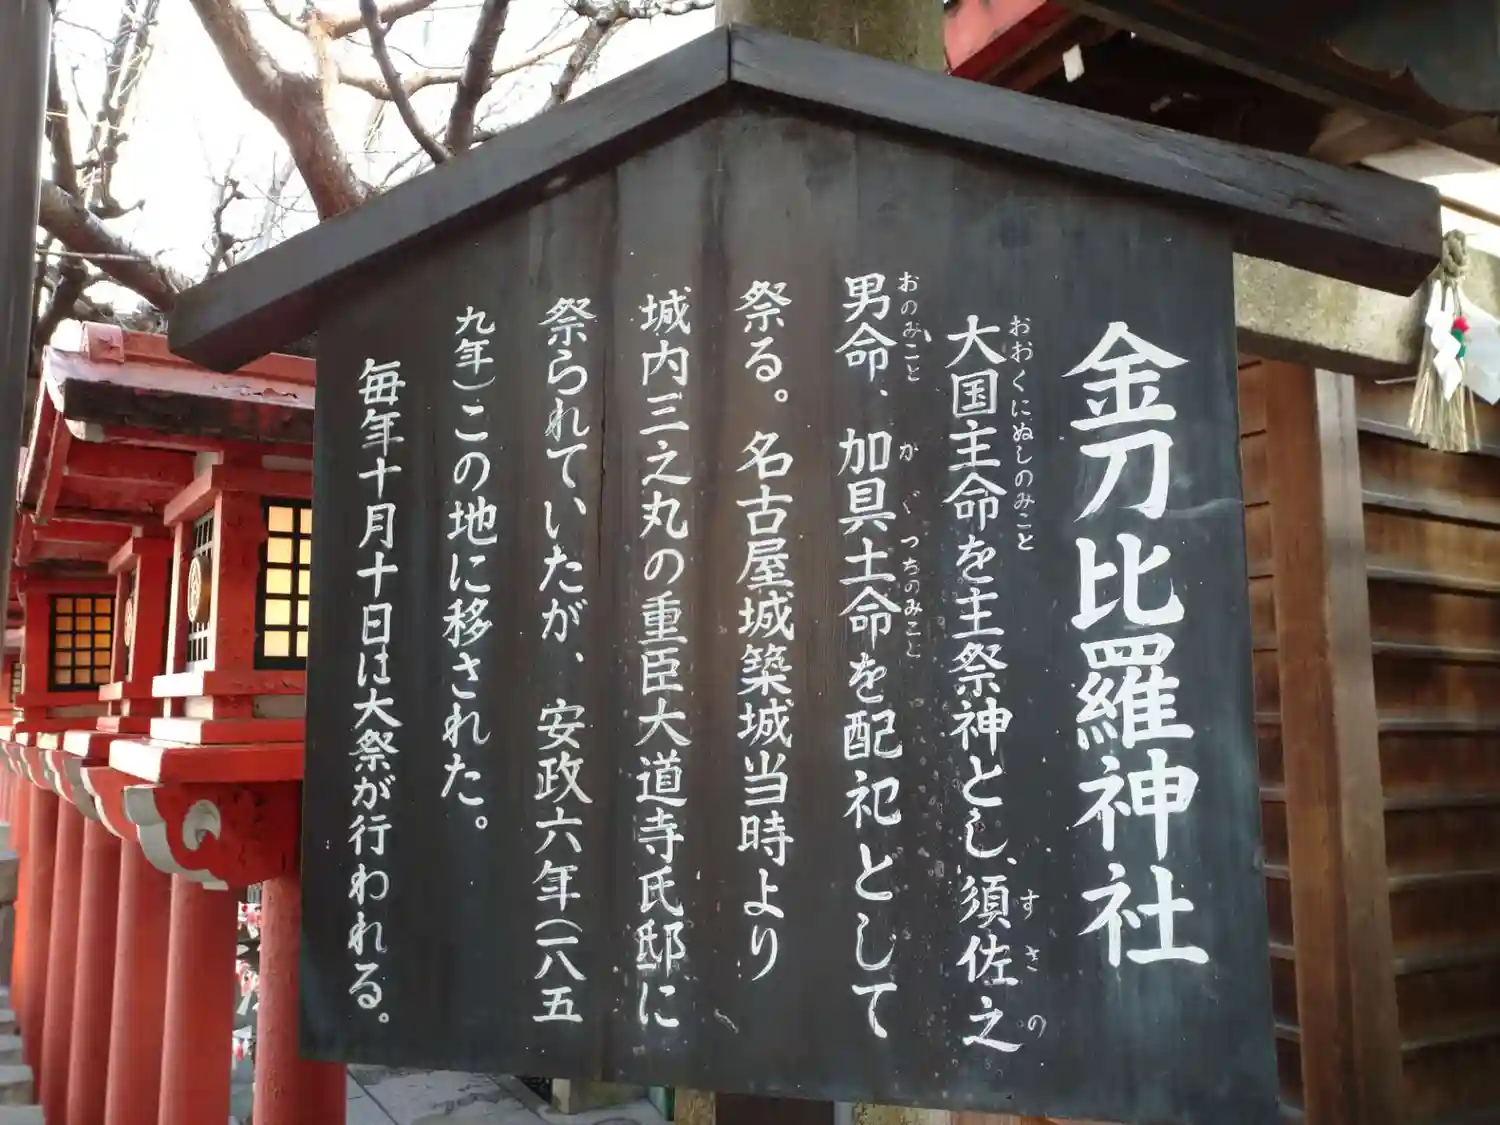 金刀比羅神社
大国主命を主祭神とし、須佐之
おおくにぬしのみこと
すさの
男命、加具土命を配祀として
おのみこと
かぐつちのみこと
祭る。名古屋城築城当時より
城内三之丸の重臣大道寺氏邸に
祭られていたが、安政六年(一八五
九年)この地に移された。
毎年十月十日は大祭が行われる。